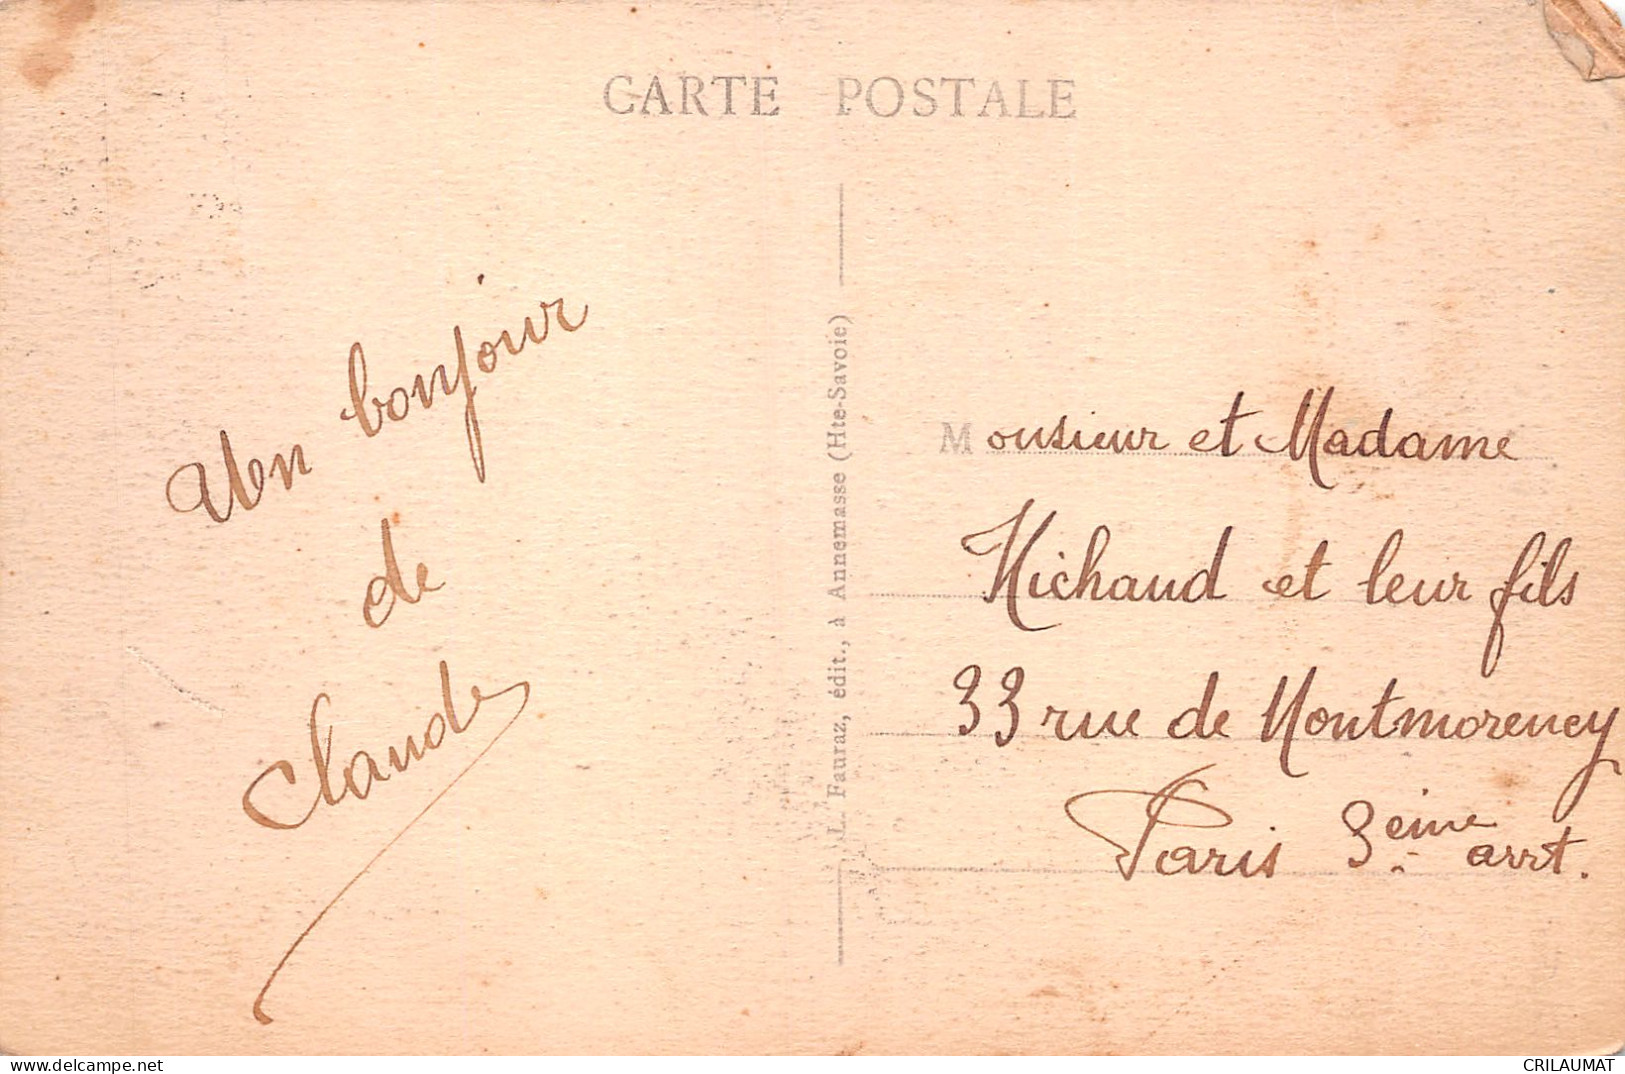 CARTE POSTALE
Un bonjour
de
Claude
L. Fauraz, édit., à Annemasse (Hte-Savoie)
Monsieur et Madame
Michaud et leur fils
33 rue de Montmorency
Paris 3ème arrt.
www.delcampe.net
CRILAUMAT